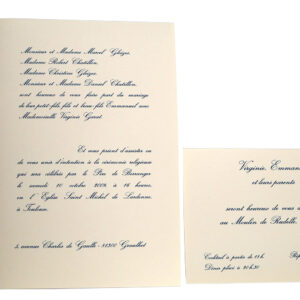 Monsieur et Madame Marcel Gleizes
Madame Robert Chatillon,
Madame Christine Gleizes
Monsieur et Madame Daniel Chatillon,
sont heureux de vous faire part du mariage
de leur petit-fils, fils et beau-fils Emmanuel avec
Mademoiselle Virginie
Et vous prient d'assister ou
de vous unir d'intention à la cérémonie religieuse
qui sera célébrée par le Père de
le samedi 10 octobre 2009 à 16 heures,
en l'Eglise Saint Michel de
à Toulouse.
avenue Charles de Gaulle - 31200
Virginie, Emma
et leurs parents
seront heureux de vous
au Moulin de
Cocktail à partir de
Dîner placé à 20h30